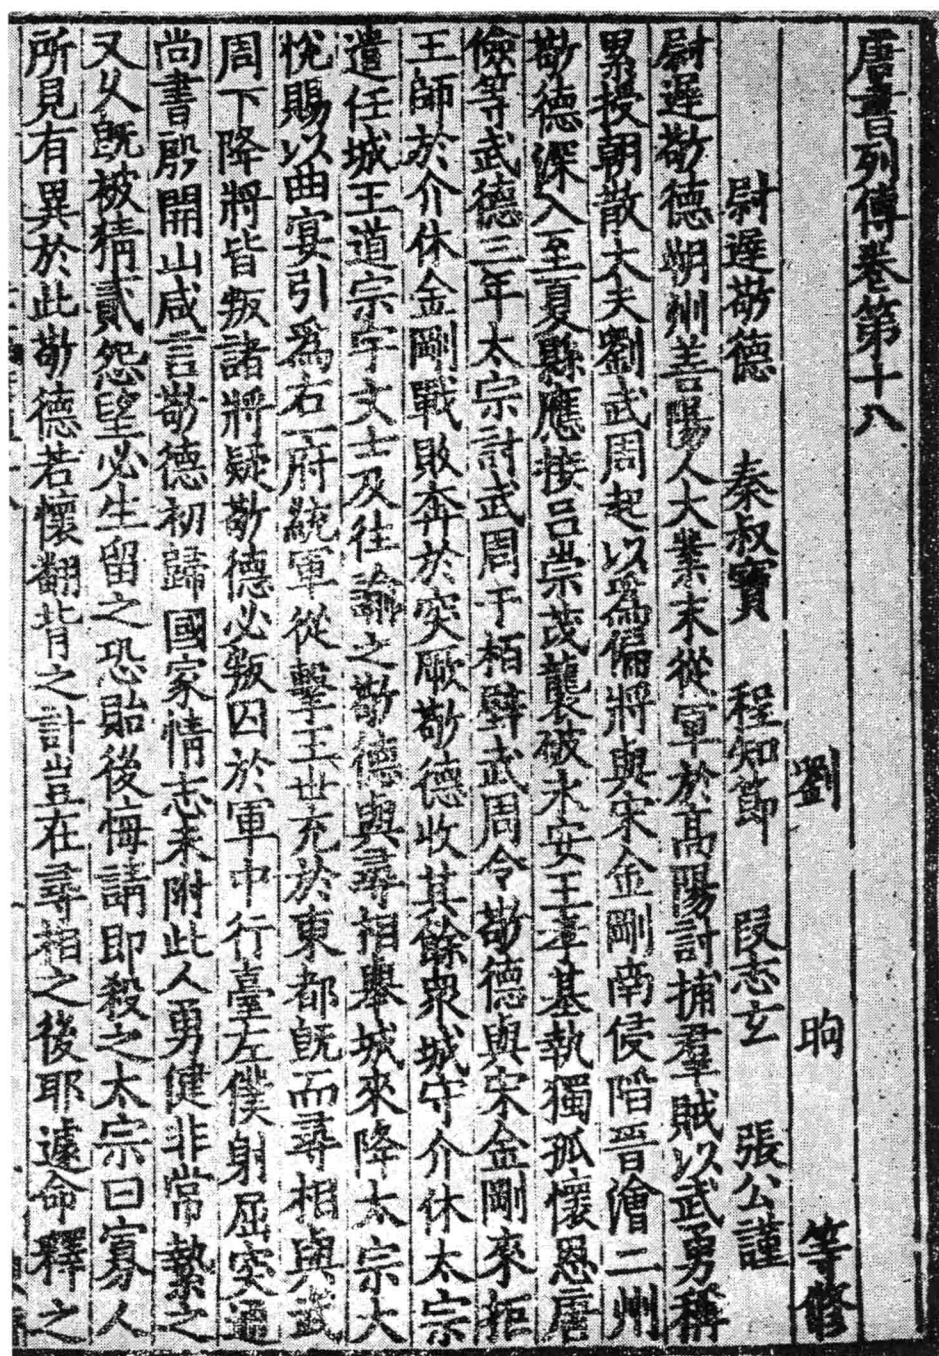 唐書列傳卷第十八
劉 昫 等修
尉遲敬德 秦叔寶 程知節 段志玄 張公謹
尉遲敬德朔州善陽人大業末從軍於高陽討捕羣賊以武勇稱
累授朝散大夫劉武周起以爲偏將與宋金剛南侵陷晉澮二州
敬德深入至夏縣應接呂崇茂襲破永安王孝基執獨孤懷恩唐
儉等武德三年太宗討武周于栢壁武周令敬德與宋金剛來拒
王師於介休金剛戰敗奔於突厥敬德收其餘衆城守介休太宗
遣任城王道宗宇文士及往諭之敬德與尋相舉城來降太宗大
悅賜以曲宴引爲右一府統軍從擊王世充於東都旣而尋相與武
周下降將皆叛諸將疑敬德必叛囚於軍中行臺左僕射屈突通
尚書殷開山咸言敬德初歸國家情志未附此人勇健非常縶之
又久旣被猜貳怨望必生留之恐貽後悔請即殺之太宗曰寡人
所見有異於此敬德若懷翻背之計豈在尋相之後耶遽命釋之